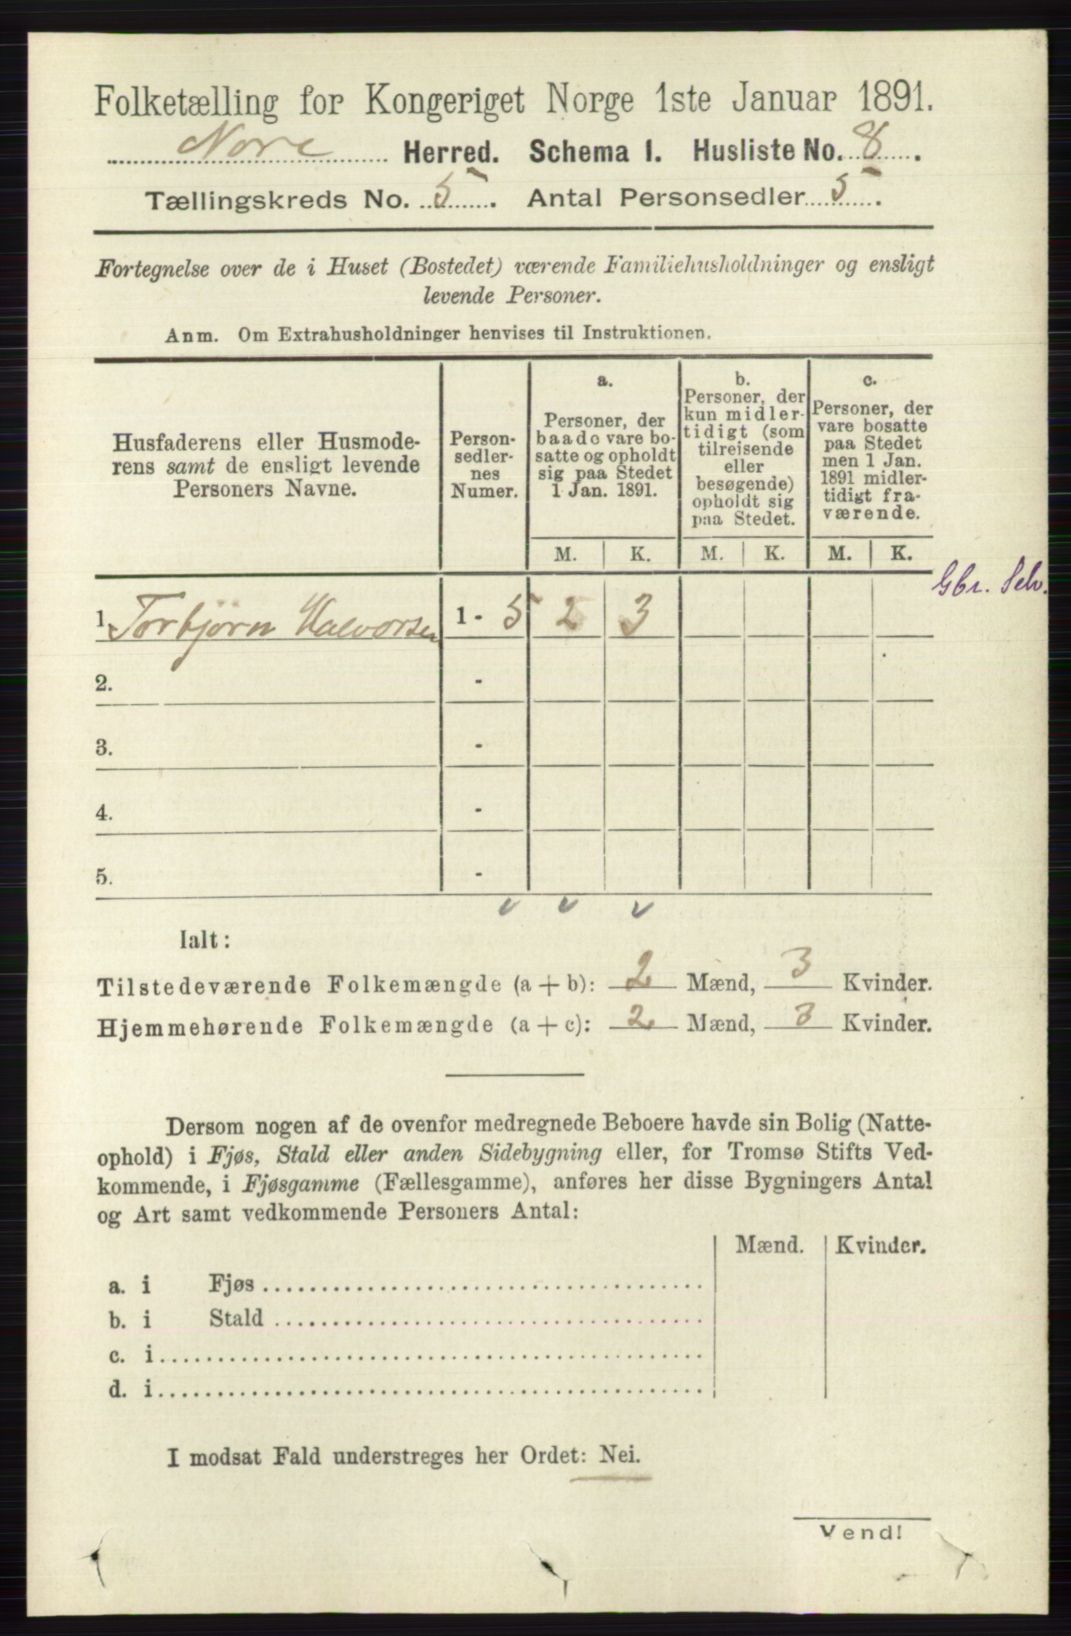 Folketælling for Kongeriget Norge 1ste Januar 1891.
Nore Herred. Schema I. Husliste No. 8.
Tællingskreds No. 5. Antal Personsedler 5.
Fortegnelse over de i Huset (Bostedet) værende Familiehusholdninger og ensligt
levende Personer.
Anm. Om Extrahusholdninger henvises til Instruktionen.
Husfaderens eller Husmode-
rens samt de ensligt levende
Personers Navne.
Person-
sedler-
nes
Numer.
a.
Personer, der
baade vare bo-
satte og opholdt
sig paa Stedet
1 Jan. 1891.
b.
Personer, der
kun midler-
tidigt (som
tilreisende
eller
besøgende)
opholdt sig
paa Stedet.
c.
Personer, der
vare bosatte
paa Stedet
men 1 Jan.
1891 midler-
tidigt fra-
værende.
M. K. M. K. M. K.
Gbr. Selv.
1. Torbjørn Halvorsen 1 - 5 2 3
2. -
3. -
4. -
5. -
Ialt:
Tilstedeværende Folkemængde (a + b): 2 Mænd, 3 Kvinder.
Hjemmehørende Folkemængde (a + c): 2 Mænd, 3 Kvinder.
Dersom nogen af de ovenfor medregnede Beboere havde sin Bolig (Natte-
ophold) i Fjøs, Stald eller anden Sidebygning eller, for Tromsø Stifts Ved-
kommende, i Fjøsgamme (Fællesgamme), anføres her disse Bygningers Antal
og Art samt vedkommende Personers Antal:
Mænd. Kvinder.
a. i Fjøs
b. i Stald
c. i
d. i
I modsat Fald understreges her Ordet: Nei.
Vend!